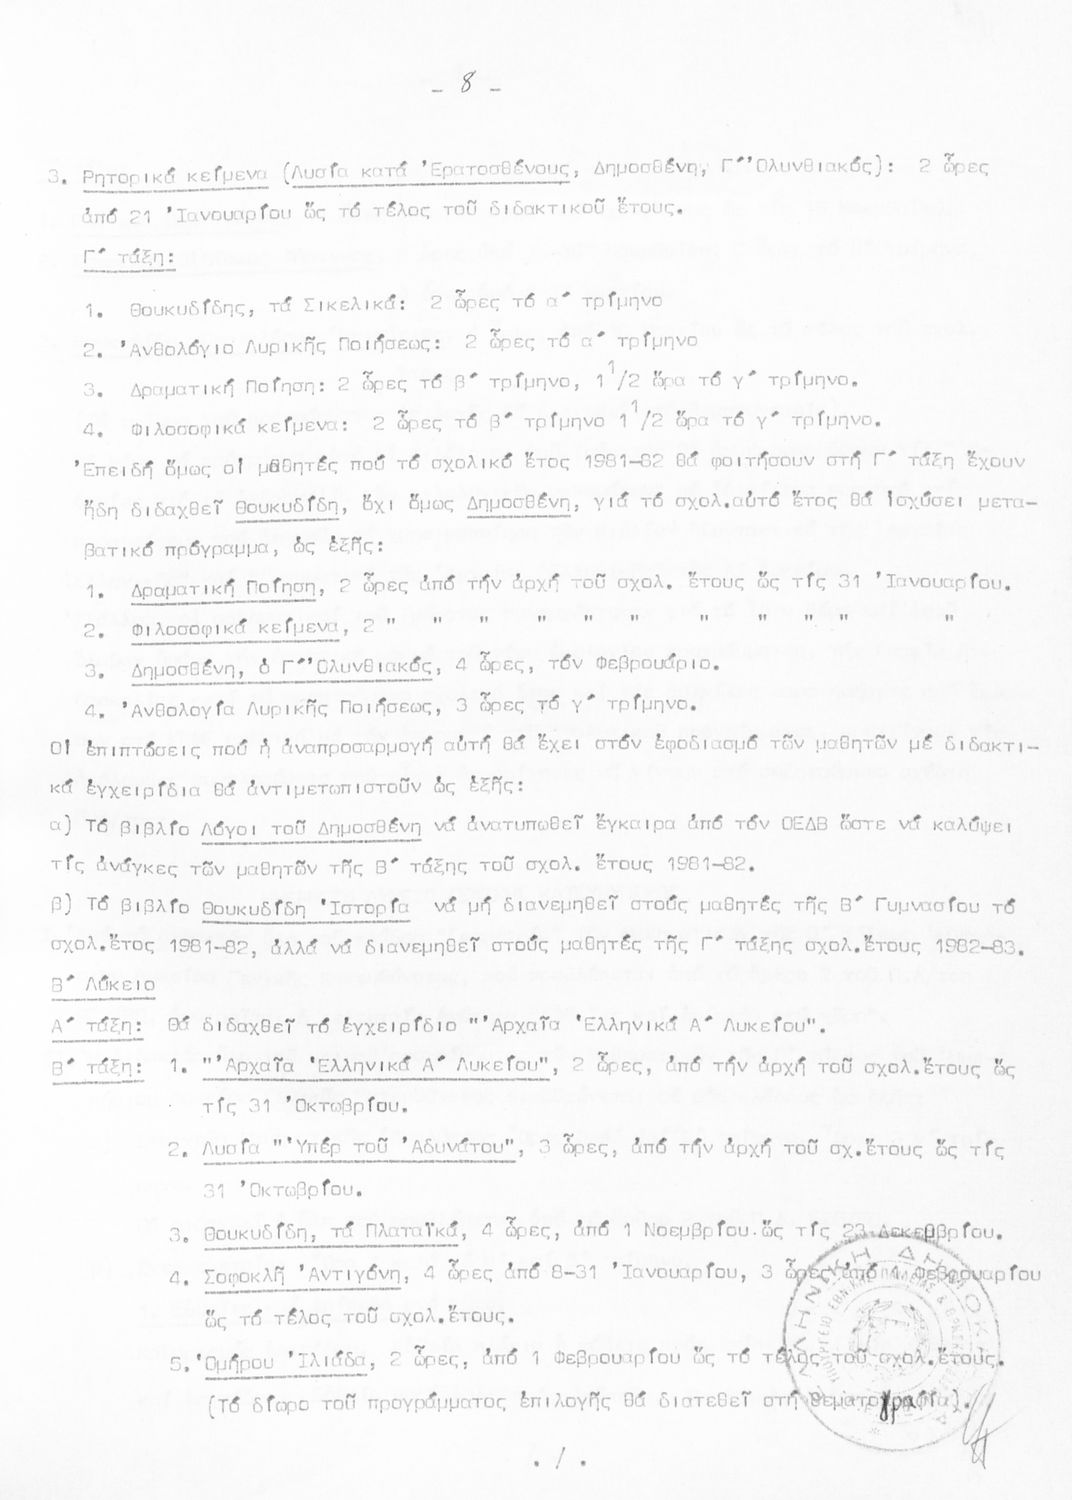 - 8 -
3. Ρητορικά κείμενα (Λυσία κατά Ἐρατοσθένους, Δημοσθένη, Γ΄ Ὀλυνθιακός): 2 ὧρες
ἀπό 21 Ἰανουαρίου ὥς τό τέλος τοῦ διδακτικοῦ ἔτους.
Γ΄ τάξη:
1. Θουκυδίδης, τά Σικελικά: 2 ὧρες τό α΄ τρίμηνο
2. Ἀνθολόγιο Λυρικῆς Ποιήσεως: 2 ὧρες τό α΄ τρίμηνο
3. Δραματική Ποίηση: 2 ὧρες τό β΄ τρίμηνο, 1 1/2 ὥρα τό γ΄ τρίμηνο.
4. Φιλοσοφικά κείμενα: 2 ὧρες τό β΄ τρίμηνο 1 1/2 ὥρα τό γ΄ τρίμηνο.
Ἐπειδή ὅμως οἱ μαθητές πού τό σχολικό ἔτος 1981-82 θά φοιτήσουν στή Γ΄ τάξη ἔχουν
ἤδη διδαχθεῖ Θουκυδίδη, ὄχι ὅμως Δημοσθένη, γιά τό σχολ.αὐτό ἔτος θά ἰσχύσει μετα-
βατικό πρόγραμμα, ὡς ἑξῆς:
1. Δραματική Ποίηση, 2 ὧρες ἀπό τήν ἀρχή τοῦ σχολ. ἔτους ὥς τίς 31 Ἰανουαρίου.
2. Φιλοσοφικά κείμενα, 2 " " " " " " " " " " "
3. Δημοσθένη, ὁ Γ΄ Ὀλυνθιακός, 4 ὧρες, τόν Φεβρουάριο.
4. Ἀνθολογία Λυρικῆς Ποιήσεως, 3 ὧρες τό γ΄ τρίμηνο.
Οἱ ἐπιπτώσεις πού ἡ ἀναπροσαρμογή αὐτή θά ἔχει στόν ἐφοδιασμό τῶν μαθητῶν μέ διδακτι-
κά ἐγχειρίδια θά ἀντιμετωπιστοῦν ὡς ἑξῆς:
α) Τό βιβλίο Λόγοι τοῦ Δημοσθένη νά ἀνατυπωθεῖ ἔγκαιρα ἀπό τόν ΟΕΔΒ ὥστε νά καλύψει
τίς ἀνάγκες τῶν μαθητῶν τῆς Β΄ τάξης τοῦ σχολ. ἔτους 1981-82.
β) Τό βιβλίο Θουκυδίδη Ἱστορία νά μή διανεμηθεῖ στούς μαθητές τῆς Β΄ Γυμνασίου τό
σχολ.ἔτος 1981-82, ἀλλά νά διανεμηθεῖ στούς μαθητές τῆς Γ΄ τάξης σχολ.ἔτους 1982-83.
Β΄ Λύκειο
Α΄ τάξη: Θά διδαχθεῖ τό ἐγχειρίδιο "Ἀρχαῖα Ἑλληνικά Α΄ Λυκείου".
Β΄ τάξη: 1. "Ἀρχαῖα Ἑλληνικά Α΄ Λυκείου", 2 ὧρες, ἀπό τήν ἀρχή τοῦ σχολ.ἔτους ὥς
τίς 31 Ὀκτωβρίου.
2. Λυσία "Ὑπέρ τοῦ Ἀδυνάτου", 3 ὧρες, ἀπό τήν ἀρχή τοῦ σχ.ἔτους ὥς τίς
31 Ὀκτωβρίου.
3. Θουκυδίδη, τά Πλαταϊκά, 4 ὧρες, ἀπό 1 Νοεμβρίου ὥς τίς 23 Δεκεμβρίου.
4. Σοφοκλῆ Ἀντιγόνη, 4 ὧρες ἀπό 8-31 Ἰανουαρίου, 3 ὧρες ἀπό 1 Φεβρουαρίου
ὥς τό τέλος τοῦ σχολ.ἔτους.
5. Ὁμήρου Ἰλιάδα, 2 ὧρες, ἀπό 1 Φεβρουαρίου ὥς τό τέλος τοῦ σχολ.ἔτους.
(Τό δίωρο τοῦ προγράμματος ἐπιλογῆς θά διατεθεῖ στή θεματογραφία).
./.
ΕΛΛΗΝΙΚΗ ΔΗΜΟΚΡΑΤΙΑ